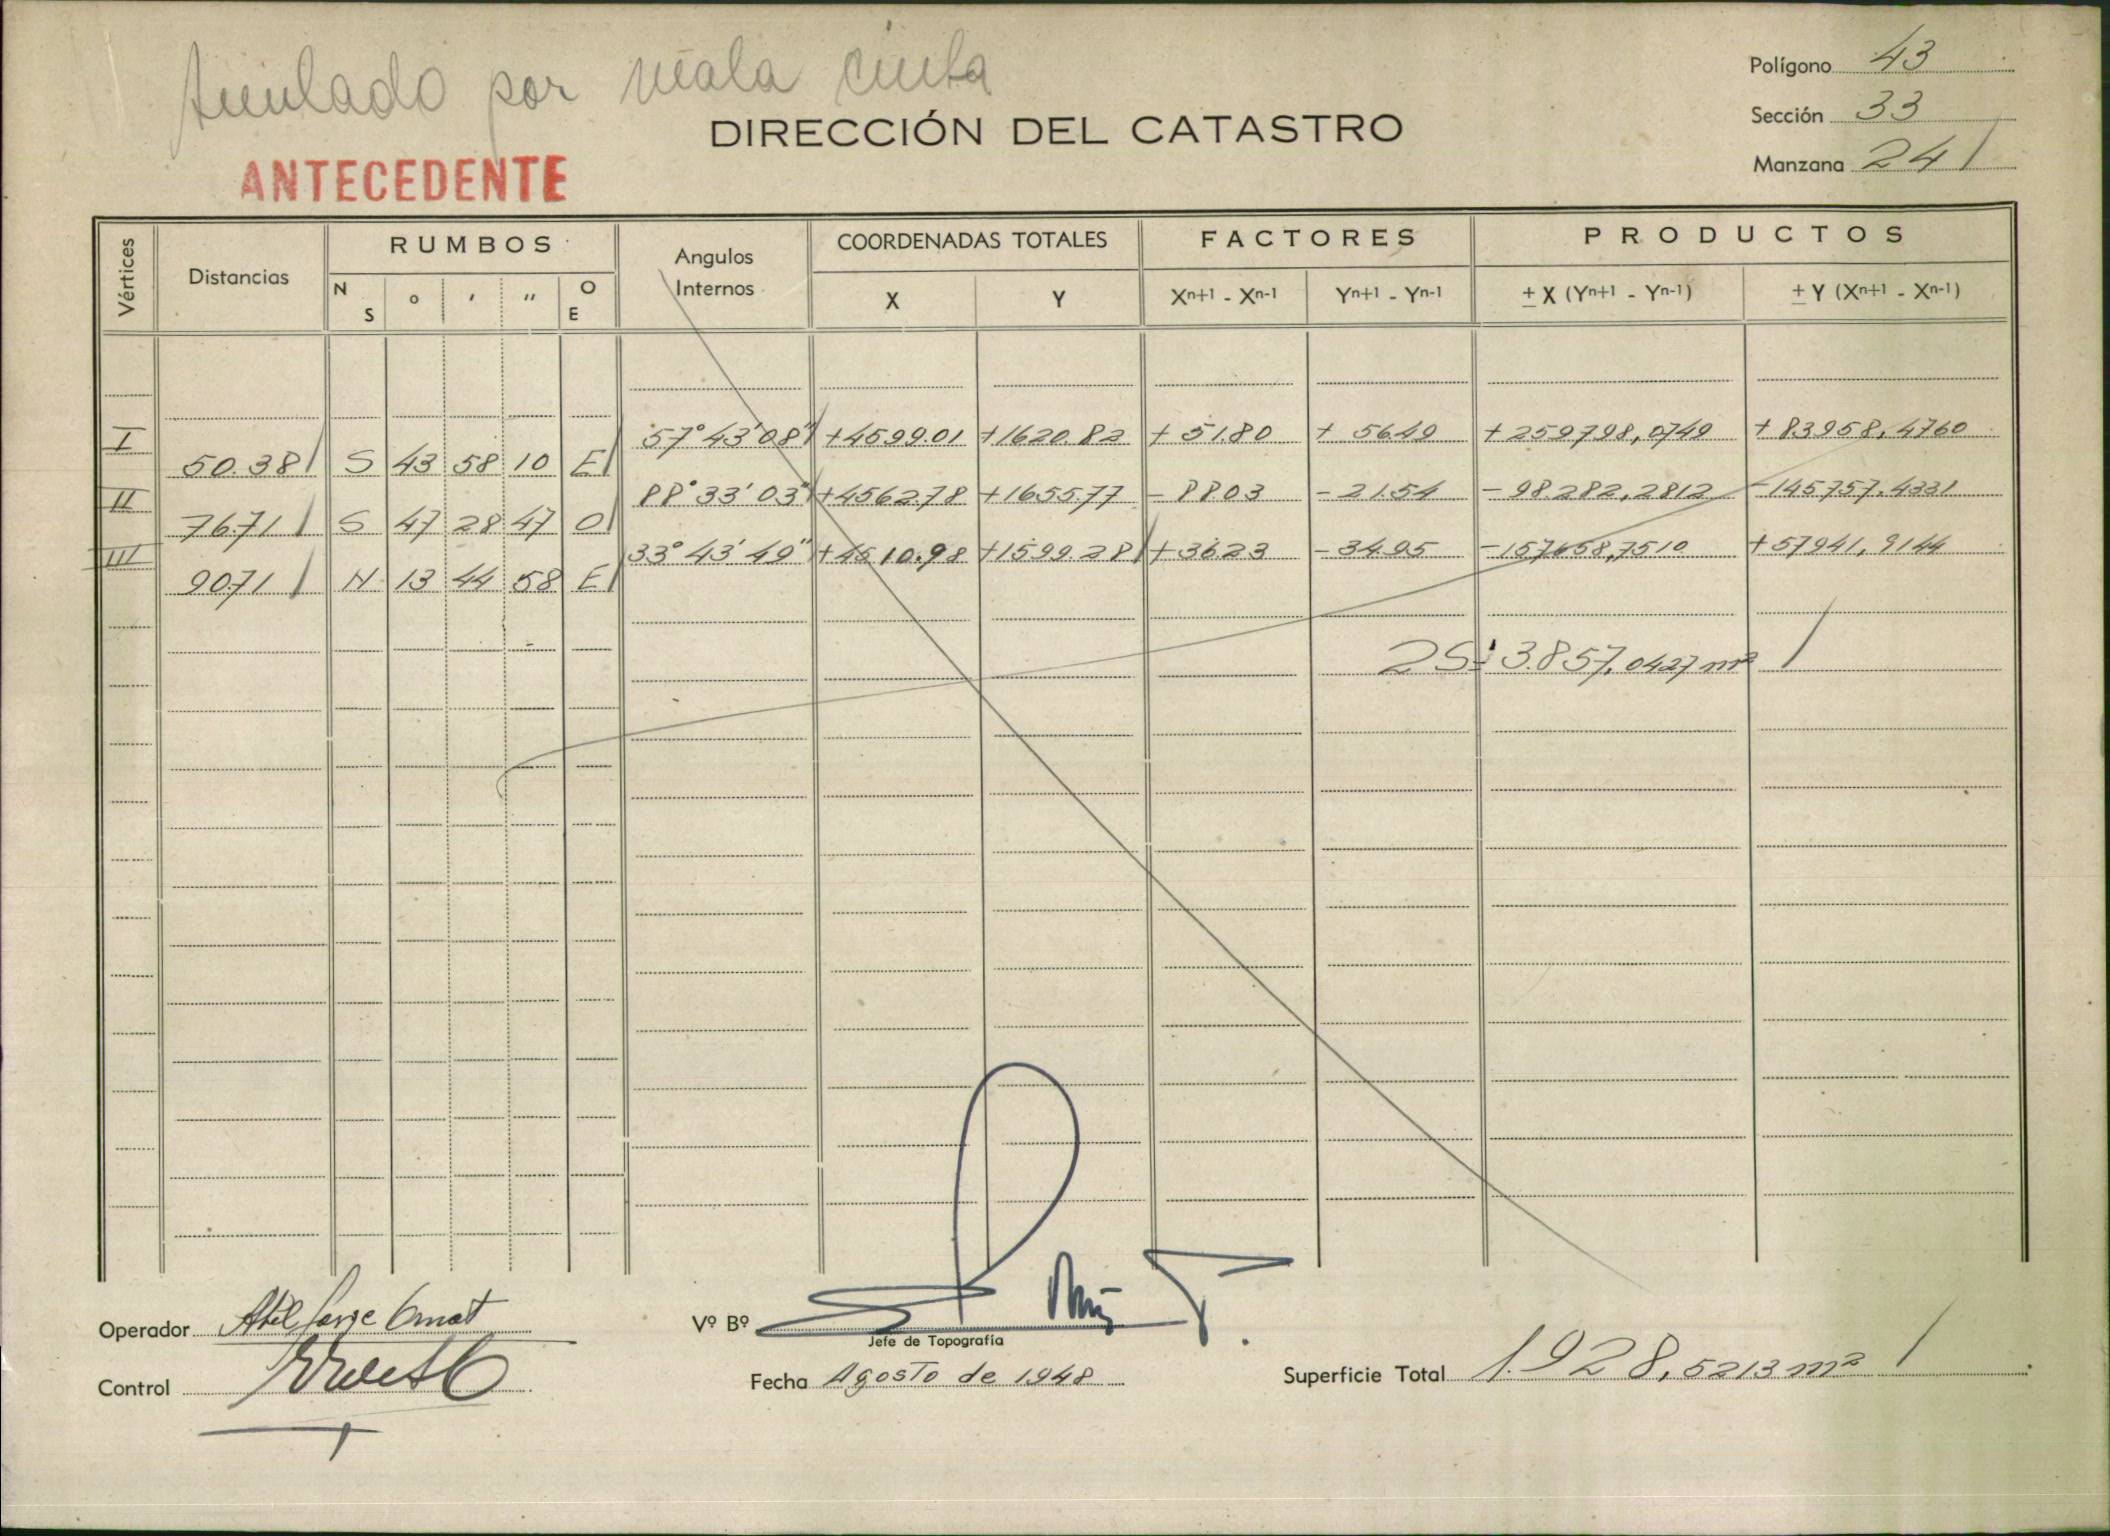 Anulado por mala cinta
DIRECCIÓN DEL CATASTRO
ANTECEDENTE
Polígono 43
Sección 33
Manzana 24
Vértices Distancias RUMBOS Angulos Internos COORDENADAS TOTALES FACTORES PRODUCTOS
N S o ' '' O E X Y Xn+1 - Xn-1 Yn+1 - Yn-1 ± X (Yn+1 - Yn-1) ± Y (Xn+1 - Xn-1)
I 57° 43' 08" +4599.01 +1620.82 + 51.80 + 56.49 + 259798,0749 + 83958,4760
50.38 S 43 58 10 E
II 88° 33' 03" +4562.78 +1655.77 - 88.03 - 21.54 - 98.282,2812 -145757.4331
76.71 S 47 28 47 O
III 33° 43' 49" +4510.98 +1599.28 +36.23 -34.95 -157658,7510 +57941,9144
90.71 N 13 44 58 E
2S= 3.857,0427 m²
Operador
Control
Vº Bº
Jefe de Topografía
Fecha Agosto de 1948
Superficie Total 1.928,5213 m²